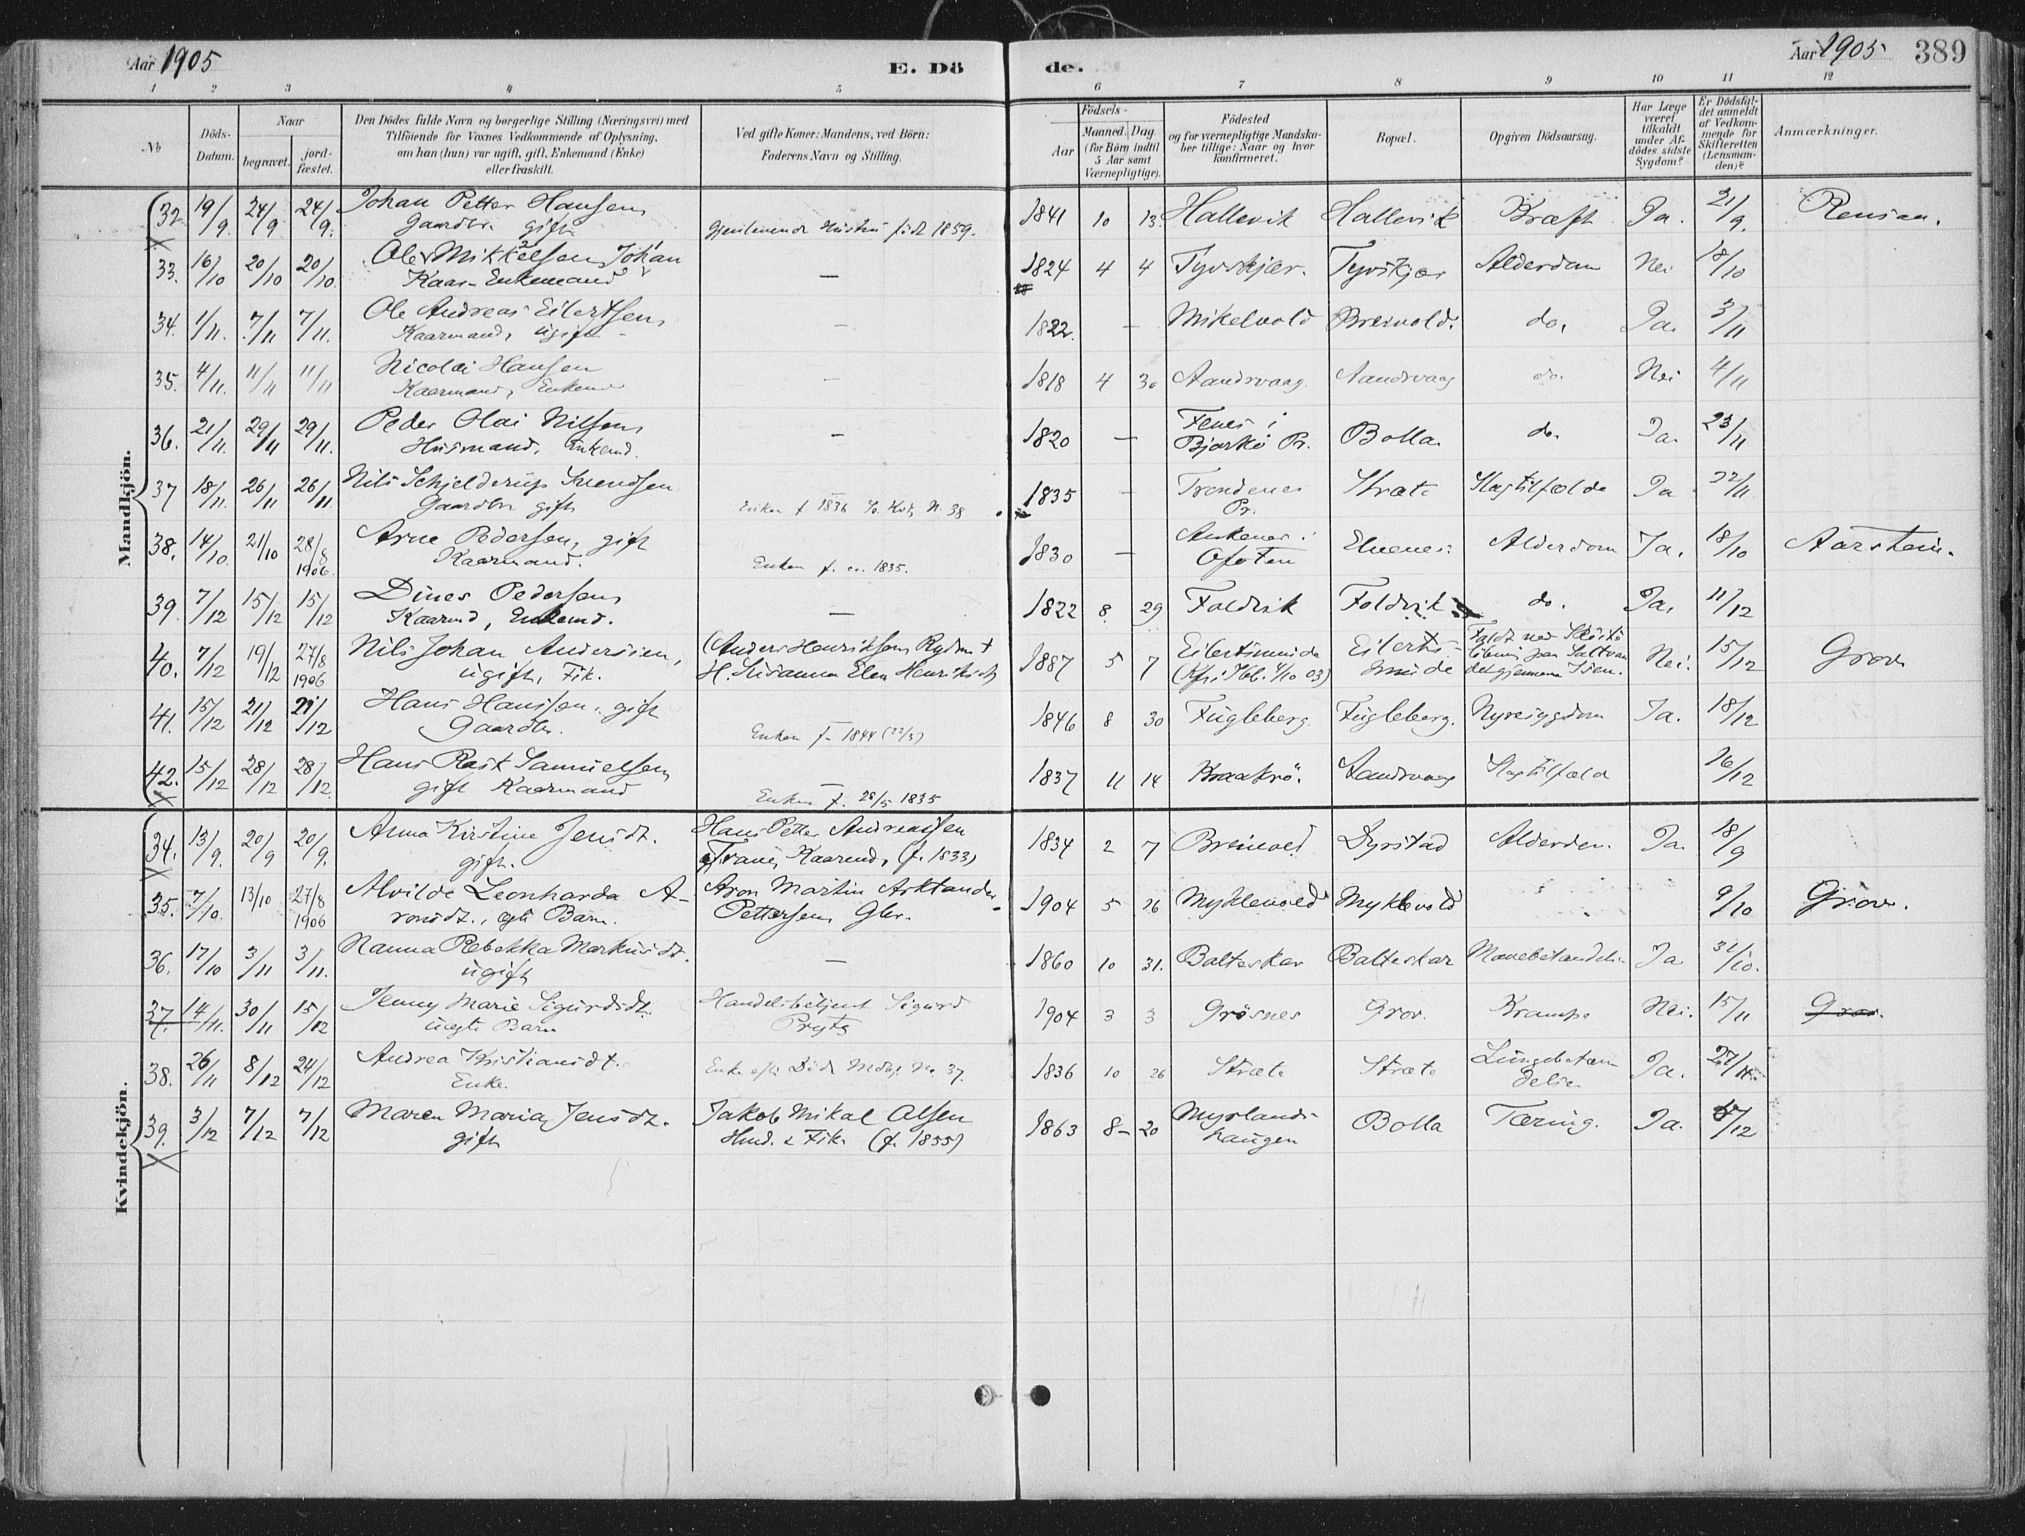 Aar 1905
E. Dö
de.
Aar 1905
389
1 2 3 4 5 6 7 8 9 10 11 12
No
Döds-
Datum.
Naar
begravet.
jord-
fæstet.
Den Dödes fulde Navn og borgerlige Stilling (Næringsvei) med
Tilföiende for Voxnes Vedkommende af Oplysning,
om han (hun) var ugift, gift, Enkemand (Enke)
eller fraskilt.
Ved gifte Koner: Mandens, ved Börn:
Faderens Navn og Stilling.
Födsels-
Aar
Maaned. Dag
(for Börn indtil
5 Aar samt
Værnepligtige).
Födested
og for værnepligtige Mandska-
ber tillige: Naar og hvor
konfirmeret.
Bopæl.
Opgiven Dödsaarsag.
Har Læge
været
tilkaldt
under Af-
dödes sidste
Sygdom?
Er Dödsfal-
det anmeldt
af Vedkom-
mende for
Skifteretten
(Lensman-
den)?
Anmærkninger.
Mandkjön.
32 19/9. 24/9 24/9. Johan Petter Hansen
Gaardbr. gift
Gjenlevende Hustru født 1859.
1841 10 13. Hallevik Hallevik Kræft Ja. 21/9. Rensaa.
33. 16/10 20/10 20/10. Ole Mikkelsen Johan
Kaar-Enkemand
—
1824 4 4 Tyvskjær. Tyvskjær Alderdom Nei 18/10
34. 1/11. 7/11 7/11. Ole Andreas Eilertsen
Kaarmand, ugift
—
1822. — Mikelvold Breivold. do. Ja. 3/11
35. 4/11. 11/11 11/11 Nicolai Hansen
Kaarmand, Enkemd
—
1818 4 30 Aandsvaag. Aandsvaag do. Nei 4/11
36. 21/11. 29/11 29/11. Peder Olai Nilsen
Husmand, Enkemd.
—
1820 — Fenes i
Bjarkö Pr. Bolla do. Ja. 23/11
37 18/11. 26/11 26/11 Nils Schjelderup Svendsen
Gaardbr gift
Enken f 1836 No. 38
1835 — Trondenes
Pr. Stræte Slagtilfælde Ja 22/11.
38. 14/10. 21/10 28/8
1906. Arne Pedersen, gift
Kaarmand.
Enken f. ca. 1835.
1830 — Ankenes i
Ofoten Elvenes. Alderdom Ja. 18/10 Aarstein.
39. 7/12 15/12 15/12 Dines Pedersen
Kaarmd, Enkemd.
—
1822 8 29 Foldvik Foldvik do. Ja. 11/12
40. 7/12 19/12 27/8
1906 Nils Johan Andersen,
ugift, Fik.
(Anders Henriksen Rydm. +
H. Susanna Elen Henriksdt)
1887 5 7 Eilertsmide
(Kfr i 4/10 03) Eilerts-
mide
gjennem Isen. Nei. 15/12 Grov
41. 15/12 21/12 21/12 Hans Hansen. gift
Gaardbr.
Enken f. 1844 (22/3)
1846 8 30 Fugleberg Fugleberg. Nyresygdom Ja. 18/12
42. 15/12 28/12 28/12. Hans Rask Samuelsen
gift Kaarmand
Enken f. 28/5 1835
1837 11 14 Kraakrö. Aandsvaag Slagtilfæld 16/12
Kvindekjön.
34. 13/9. 20/9 20/9. Anna Kirstine Jensdt.
gift.
Hans Petter Andreassen
Kaarmd, (f. 1833)
1834 2 7 Breivold Dyrstad Alderdom Ja. 18/9
35. 7/10. 13/10 27/8
1906 Alvilde Leonharda A-
ronsdt., egte Barn.
Aron Martin Arktander
Pettersen Gbr.
1904 5 26 Myklevold Myklevold 9/10 Grov.
36. 17/10 3/11 3/11. Nanna Rebekka Markusdt.
ugift
—
1860 10 31. Balteskar Balteskar Mavebetændelse Ja 31/10.
37. 14/11. 30/11 15/12 Jenny Marie Sigurdsdt.
uegte Barn
Handelsbetjent Sigurd
Prytz
1904 3 3 Grösnes Grov. Krampe Nei. 15/11 Grov.
38. 26/11 8/12 24/12 Andrea Kristiansdt.
Enke.
Enke eft. Död Mdkj. No 37.
1836 10 26 Stræte Stræte Lungebetæn-
delse Ja. 27/11.
39. 3/12 7/12 7/12 Maren Maria Jensdt.
gift
Jakob Mikal Olsen
Hmd. & Fik. (f. 1855)
1863 8 — 20 Myrlands-
haugen Bolla Tæring. Ja. 7/12